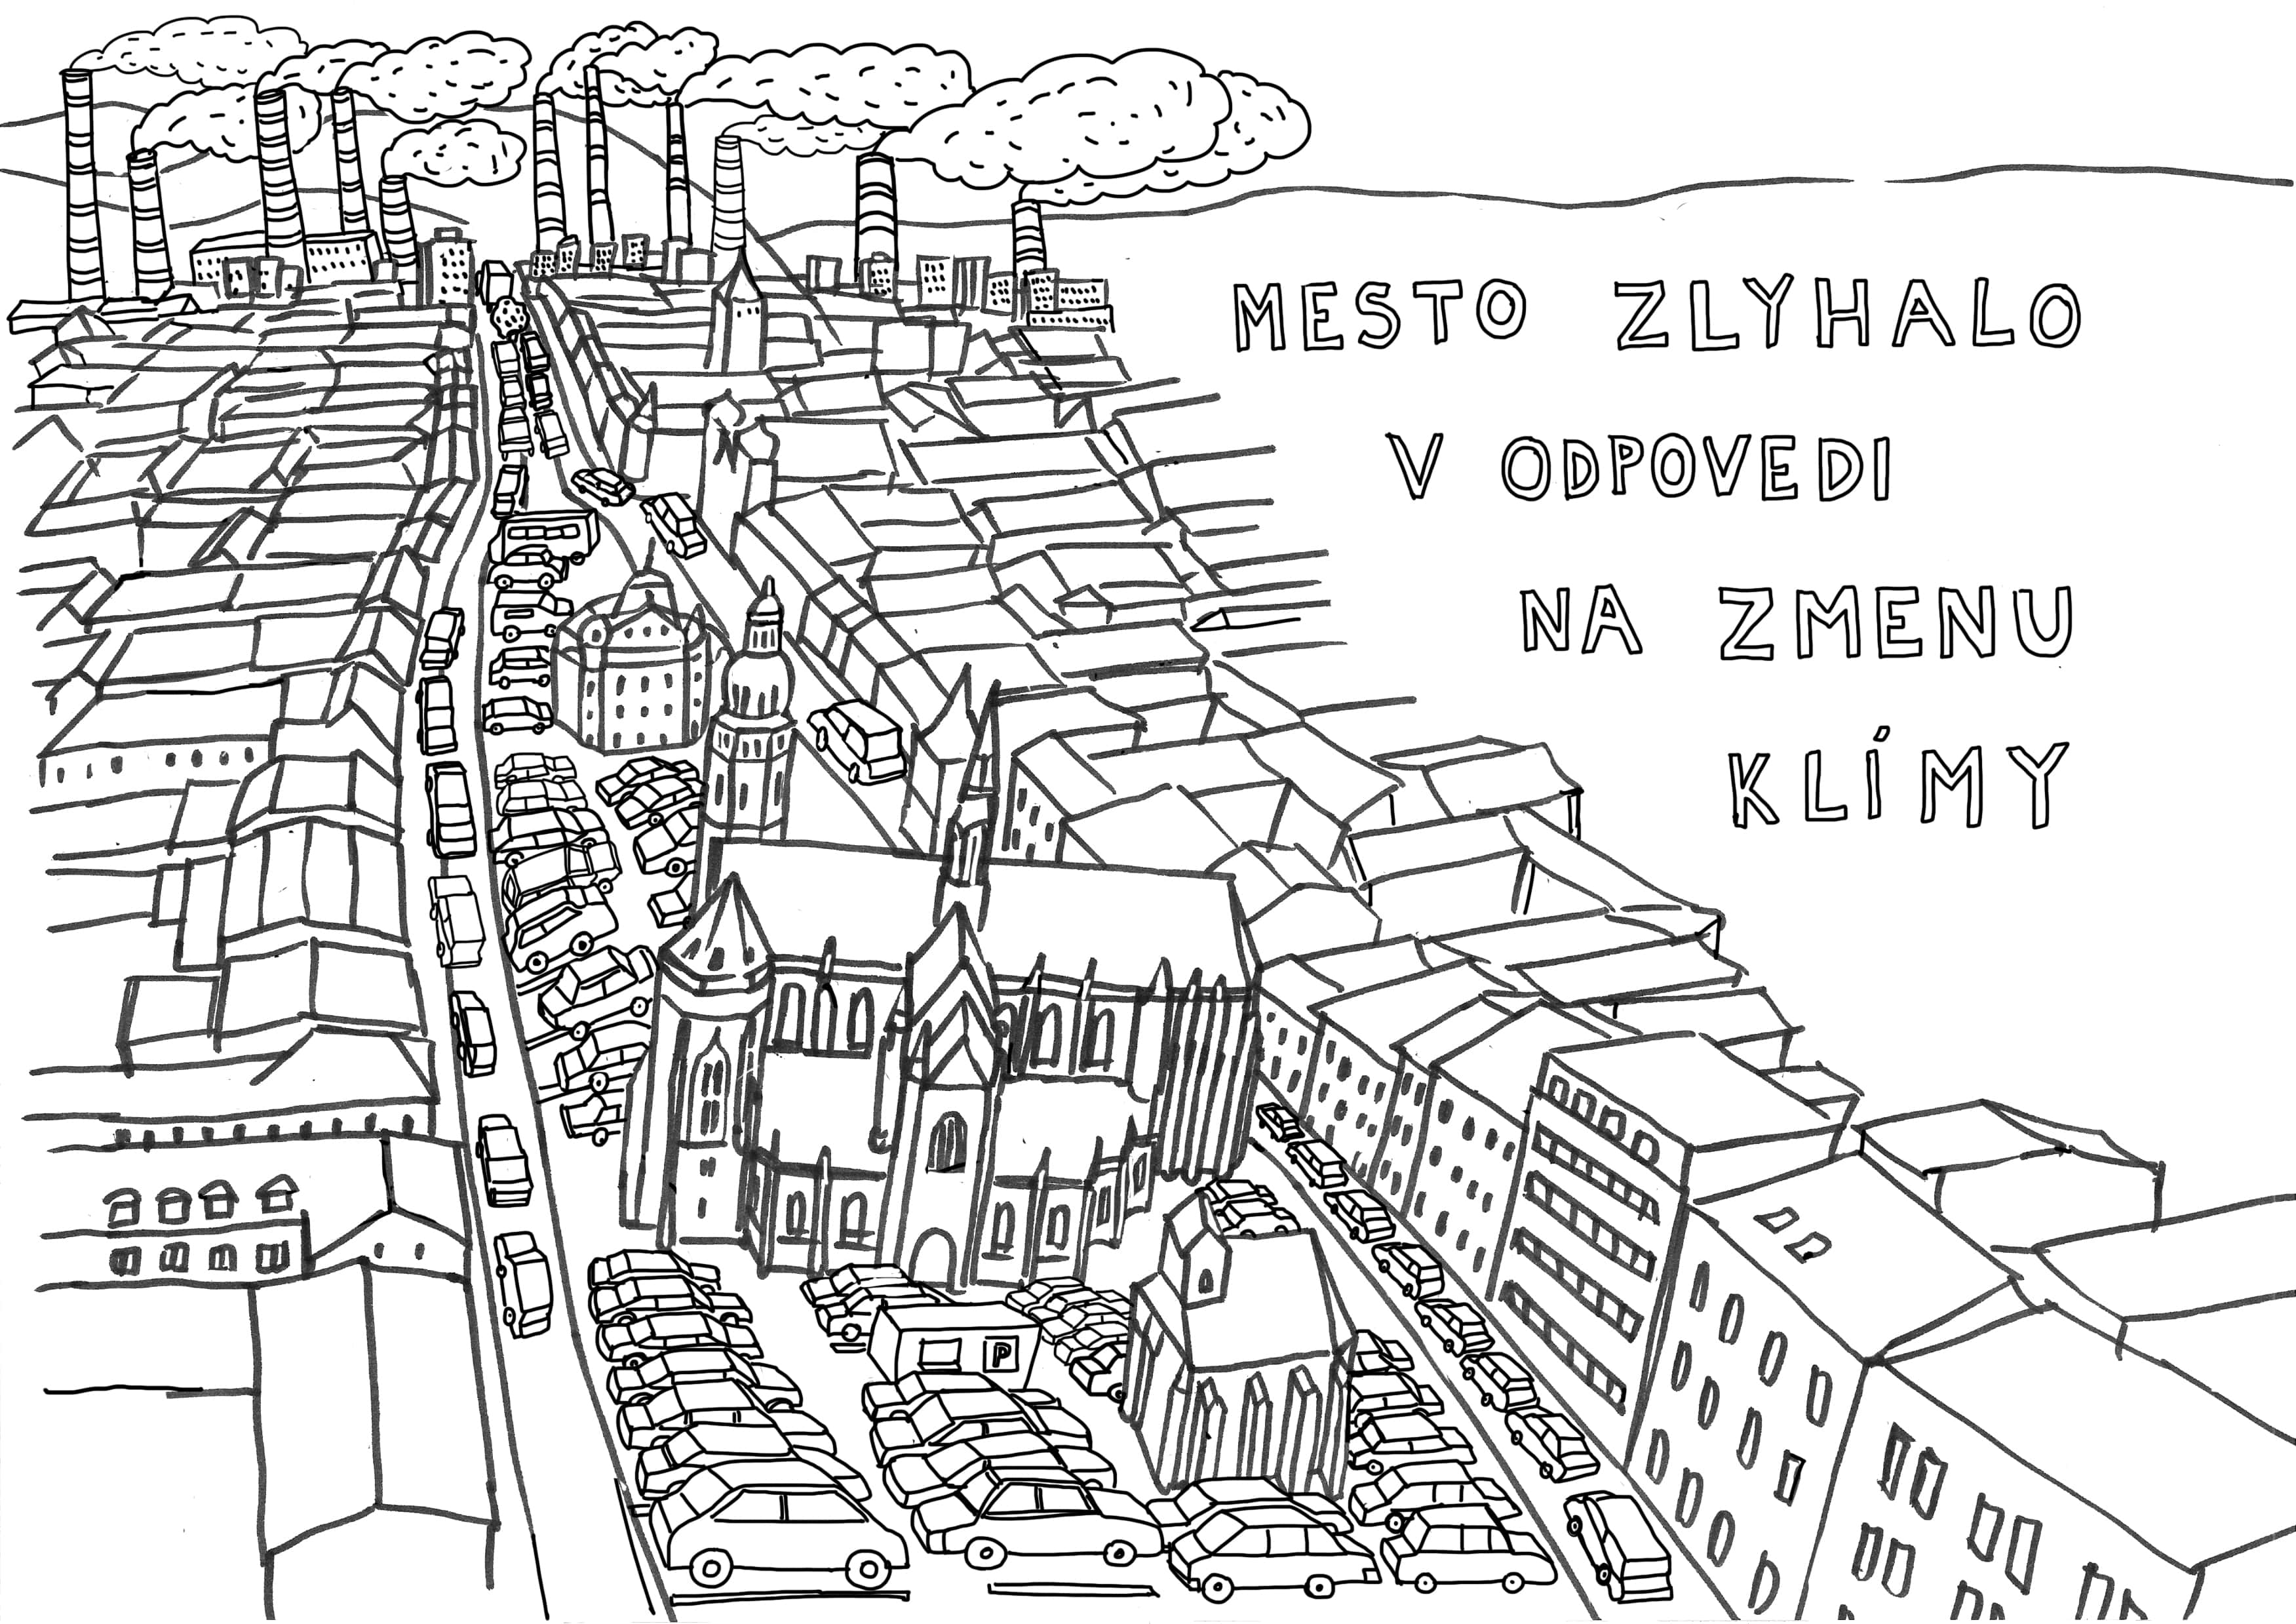 MESTO ZLYHALO
V ODPOVEDI
NA ZMENU
KLÍMY
P